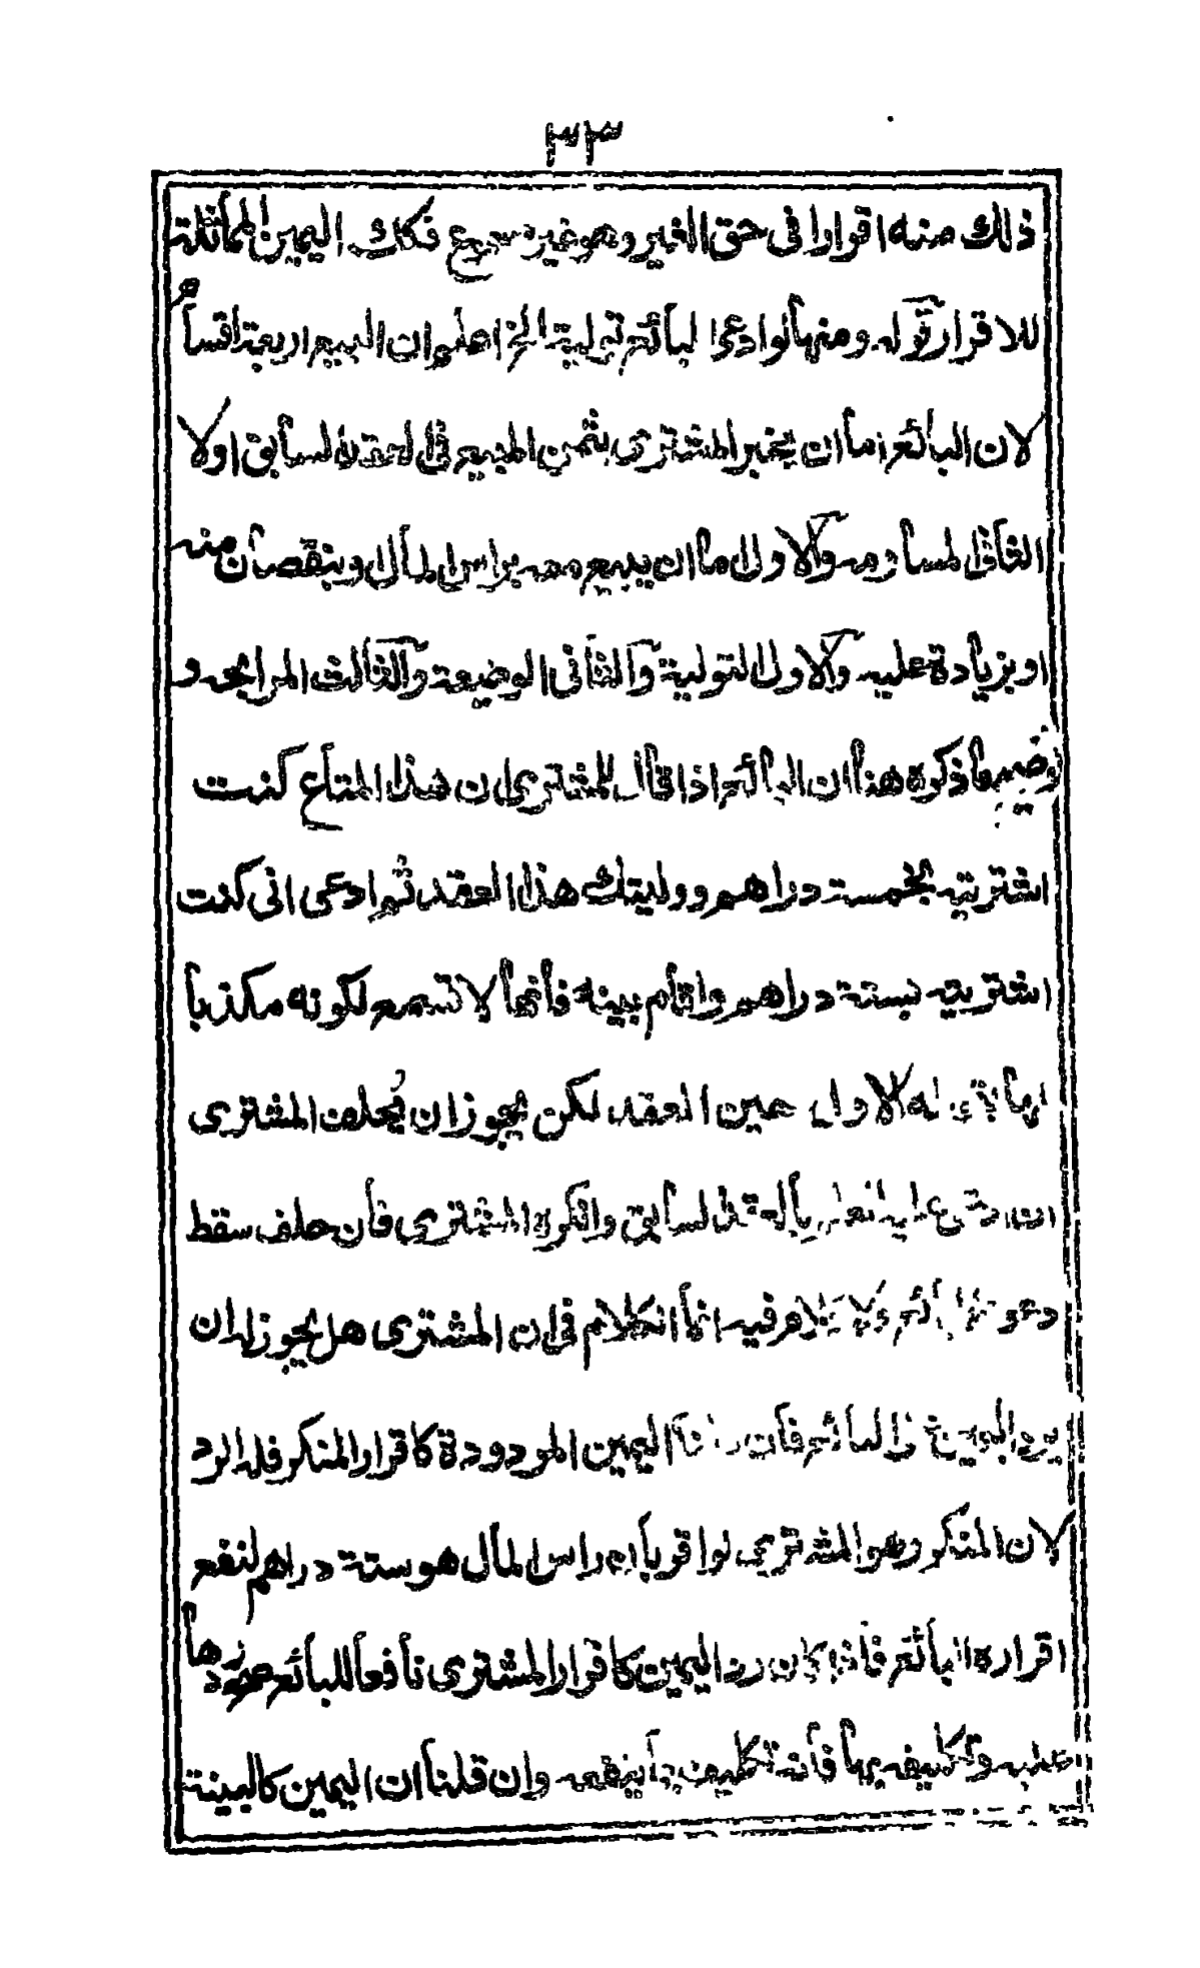 ٣٣
ذلك منه اقرارا فى حق الغير وهو غير مسموع فكك اليمين المماثلة
للاقرار قوله ومنها لو ادعى البائع تولية الخ اعلم ان البيع اربعة اقسام
لان البائع اما ان يخبر المشترى بثمن المبيع فى العقد السابق اولا
الثانى المساومه والاول اما ان يبيع معه براس المال او بنقصان منه
او بزيادة عليه والاول التولية والثانى الوضيعة والثالث المرابحه و
توضيح ما ذكره هنا ان البائع اذا قال للمشترى ان هذا المتاع كنت
اشتريته بخمسة دراهم ووليتك هذا العقد ثم ادعى انى كنت
اشتريته بستة دراهم واقام بينه فانها لا تسمع لكونه مكذبا
لها الاول حين العقد لكن يجوز ان يُحلف المشترى
ان ادعى عليه العلم بالعقد السابق وانكره المشترى فان حلف سقط
دعوى البائع ولا كلام فيه انما الكلام فى ان المشترى هل يجوز له ان
يرد اليمين البائع فان قلنا اليمين المردودة كاقرار المنكر فله الرد
لان المنكر وهو المشترى لو اقر بان راس المال هو ستة دراهم لنفع
اقراره البائع فاذا كان رد اليمين كاقرار المشترى نافعا للبائع ردها
عليه وتكليفه بها فانه تكليف بما ينفعه وان قلنا ان اليمين كالبينة